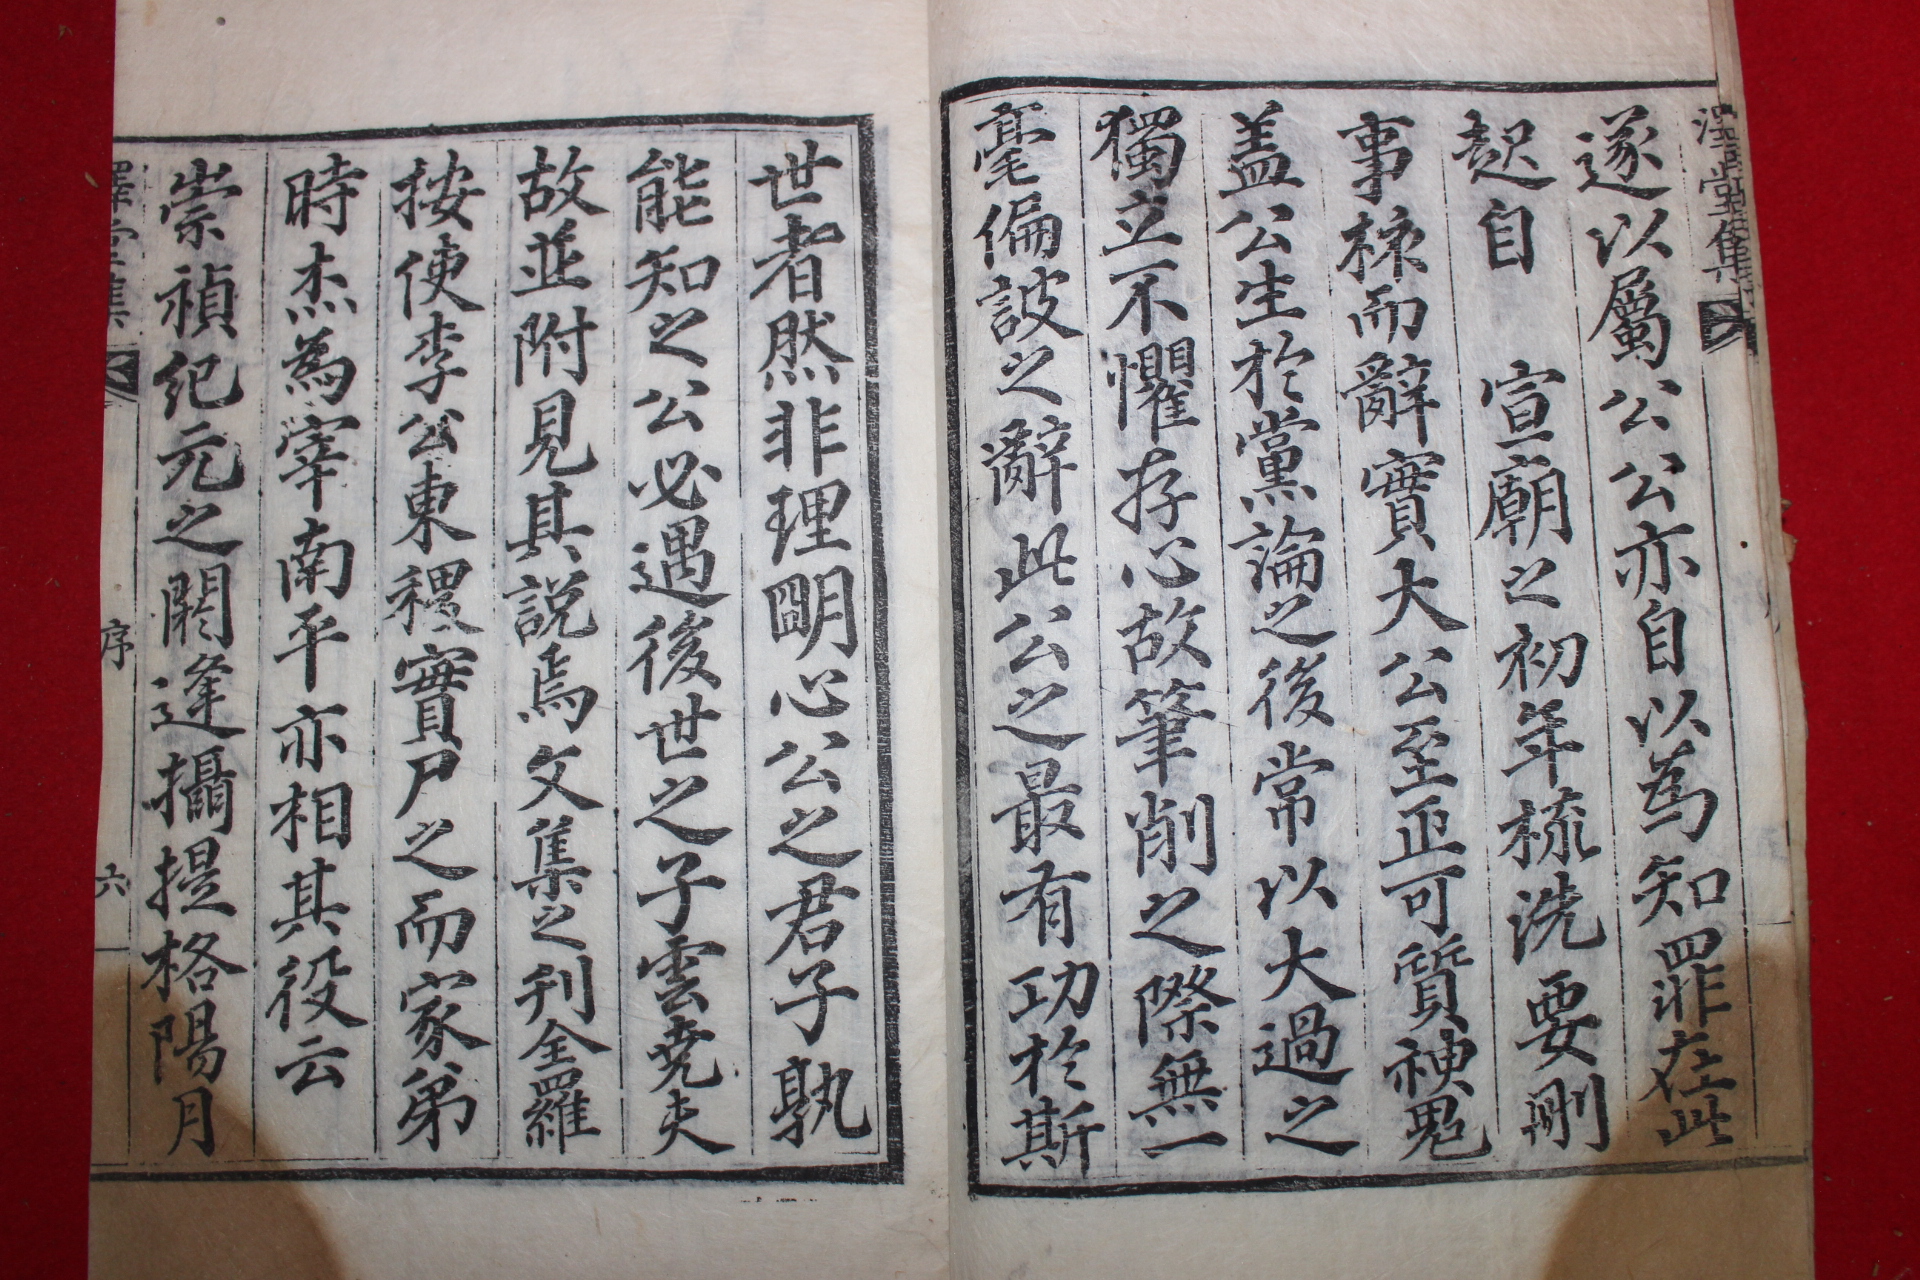 遂以屬公公亦自以爲知罪在此
起自　宣廟之初年梳洗要刪
事核而辭實大公至正可質神鬼
盖公生於黨論之後常以大過之
獨立不懼存心故筆削之際無一
毫偏詖之辭此公之最有功於斯
世者然非理明心公之君子孰
能知之公必遇後世之子雲堯夫
故並附見其說焉文集之刊全羅
按使李公東稷實尸之而家弟
時杰為宰南平亦相其役云
崇禎紀元之閼逢攝提格陽月
澤堂集
序
六